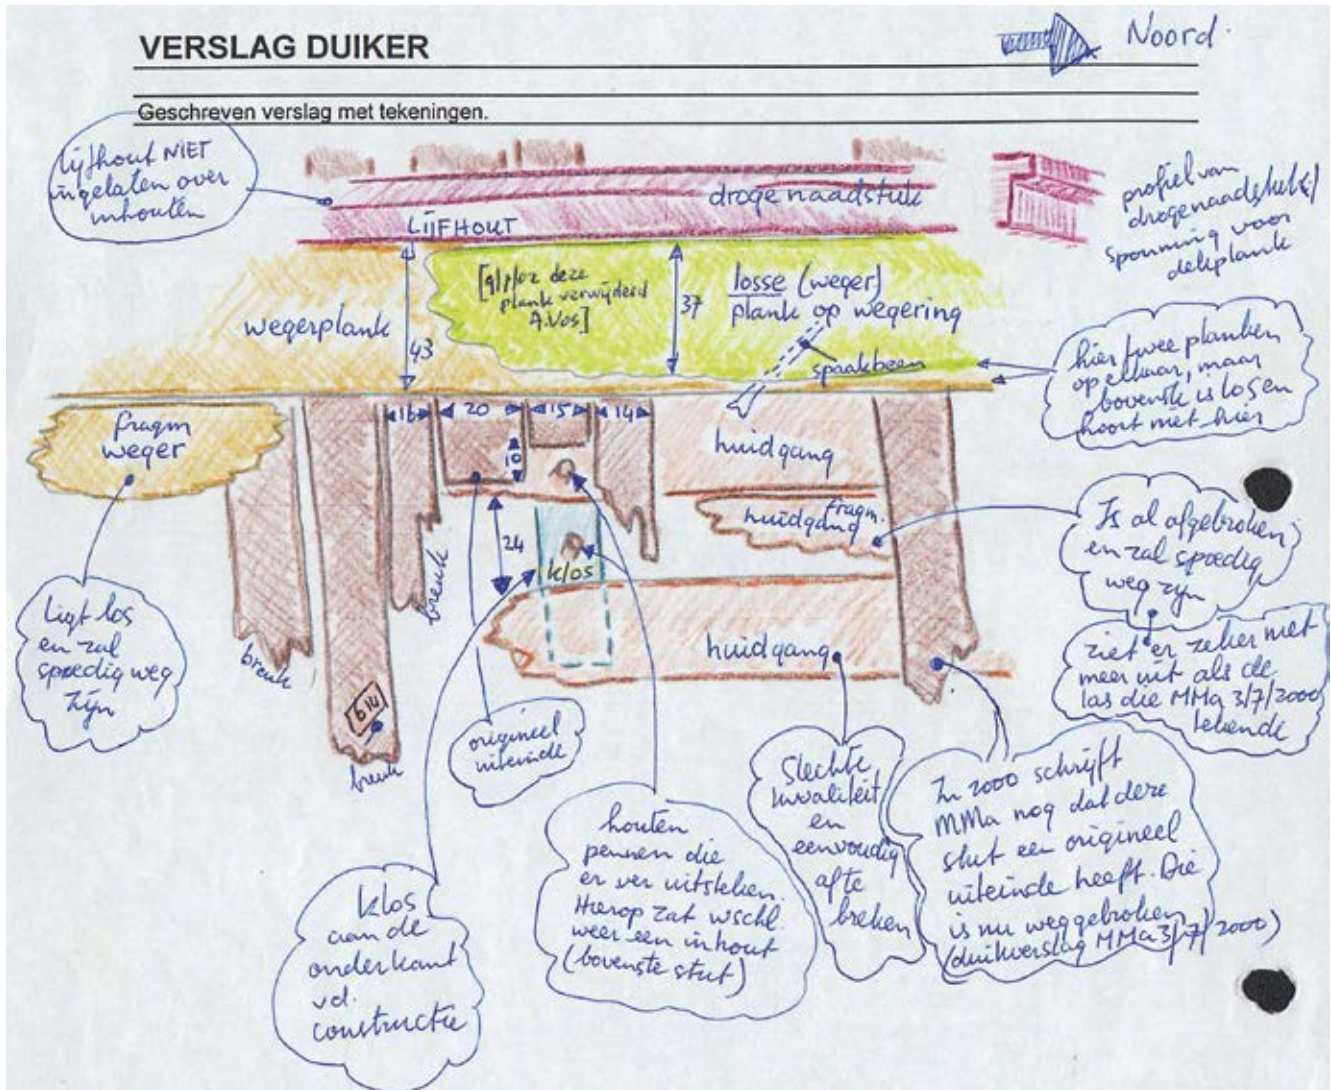 VERSLAG DUIKER
Noord.
Geschreven verslag met tekeningen.
Lijfhout NIET
ingelaten over
inhouten
droge naadstuk
LIJFHOUT
profiel van
drogenaadstuk /
sponning voor
dekplank
[9/7/02 deze
plank verwijderd
A.Vos]
37
losse (weger)
plank op wegering
wegerplank
43
spaakbeen
hier twee planken
op elkaar, maar
bovenste is los en
hoort niet hier
fragm
weger
16
20
15
14
10
huidgang
huidgang fragm.
24
klos
breuk
Is al afgebroken
en zal spoedig
weg zijn
Ligt los
en zal
spoedig weg
zijn
breuk
huidgang
ziet er zeker niet
meer uit als de
las die MMa 3/7/2000
tekende
614
breuk
origineel
uiteinde
Slechte
kwaliteit
en
eenvoudig
af te
breken
In 2000 schrijft
MMa nog dat deze
stut een origineel
uiteinde heeft. Die
is nu weggebroken
(duikverslag MMa 3/7/2000)
houten
pennen die
er ver uitsteken.
Hierop zat wschl.
weer een inhout
(bovenste stut)
klos
aan de
onderkant
vd.
constructie